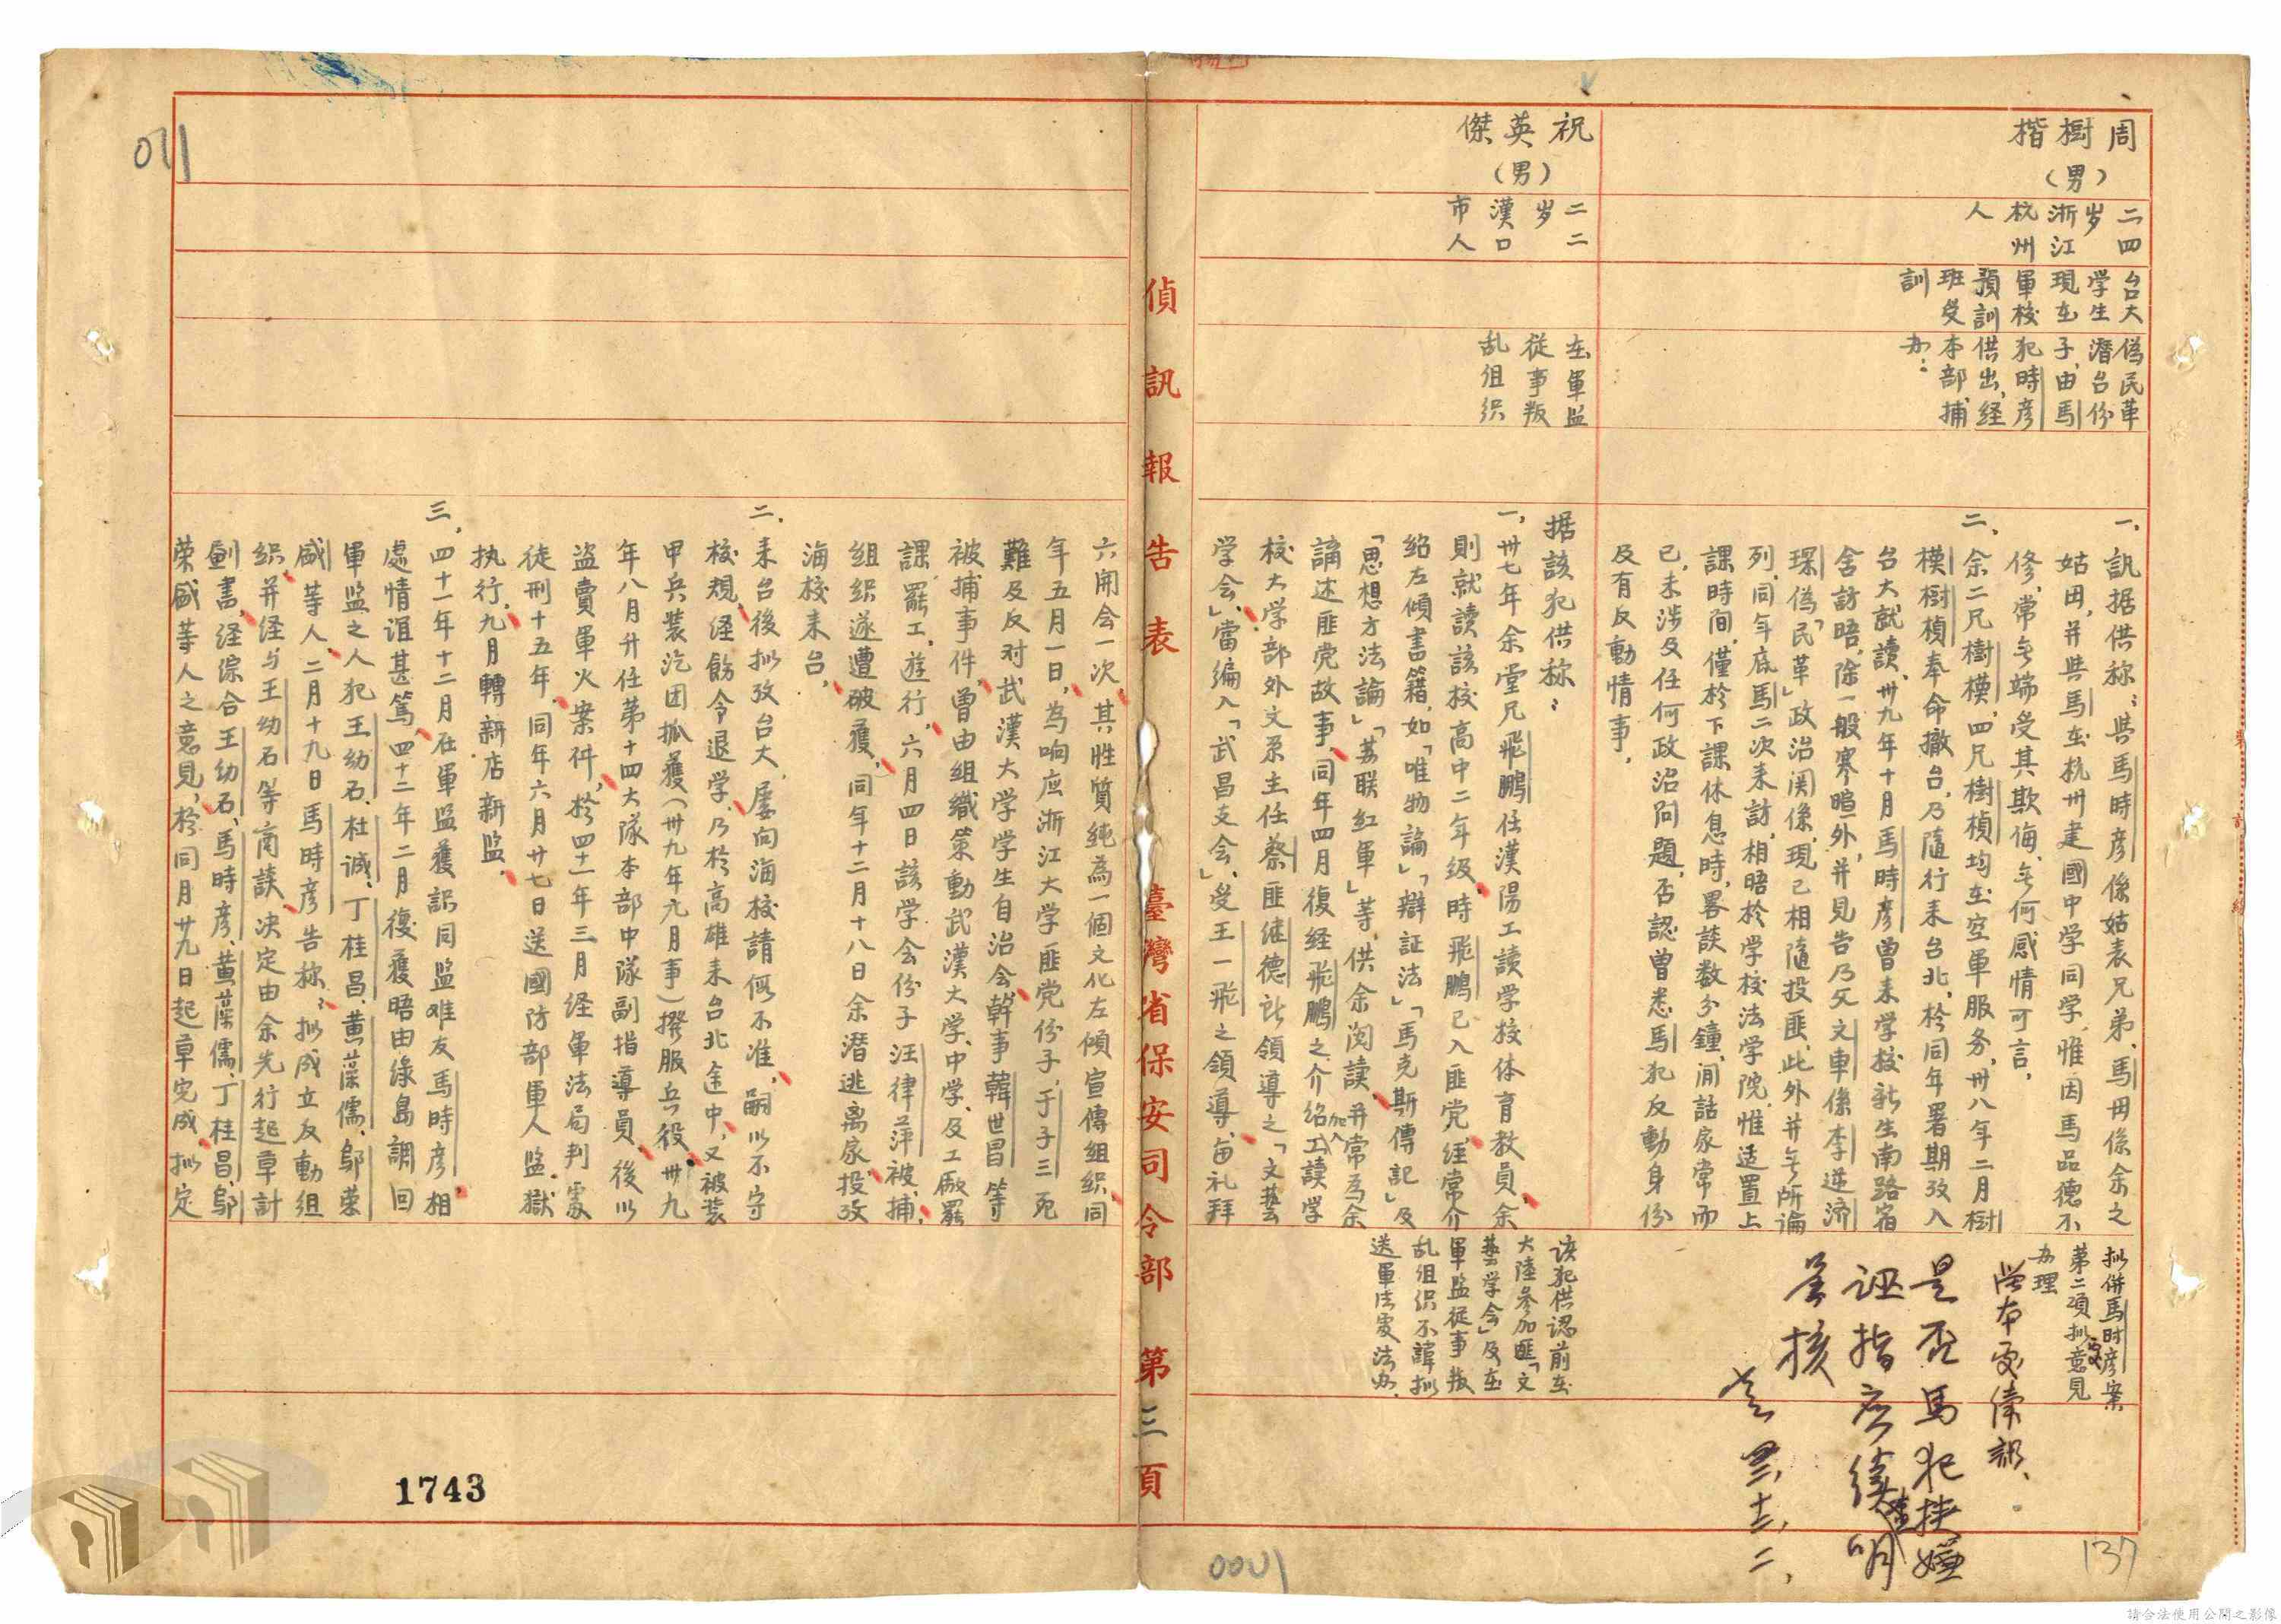 周樹楷
（男）
二四
岁
浙江
杭州
人
台大
学生
現在
軍校
預訓
班受
訓
偽民革
潛台份
子，由馬
犯時彥
供出，経
本部捕
办：
一、訊据供称：與馬時彥係姑表兄弟，馬母係余之
姑母，并與馬在杭州建國中学同学，惟因馬品德不
修，常無端受其欺侮，無何感情可言，
二、余二兄樹模，四兄樹楨均在空軍服务，卅八年二月樹
模樹楨奉命撤台，乃隨行來台北，於同年署期攷入
台大就讀，卅九年十月馬時彥曾来学校新生南路宿
舍訪晤，除一般寒暄外，并見告乃父文車係李逆濟
琛偽「民革」政治関係，現已相隨投匪，此外并無所論
列，同年底馬二次来訪，相晤於学校法学院，惟适置上
課時间，僅於下課休息時，畧談数分鐘，闲話家常而
已，未涉及任何政治问題，否認曾悉馬犯反動身份
及有反動情事，
拟併馬时彥案
第二項拟處意見
办理
是否馬犯挾嫌
誣指應續查明
呈核
祝英傑
（男）
二二
岁
漢口
市人
在軍监
從事叛
乱组织
据該犯供称：
一、卅七年余堂兄飛鵬任漢陽工讀学校体育教員，余
則就讀該校高中二年级，時飛鵬已入匪党，経常介
绍左傾書籍，如「唯物論」「辯証法」「馬克斯傳記」及
「思想方法論」「苏联红軍」等，供余阅读，并常為余
誦述匪党故事，同年四月復经飛鵬之介绍加入工讀学
校大学部外文系主任蔡匪继德所領導之「文藝
学会」，當编入「武昌支会」，受王一飛之領導，每礼拜
該犯供認前在
大陸参加匪「文
藝学会」及在
軍监從事叛
乱组织不諱拟
送軍法處法办，
偵訊報告表　臺灣省保安司令部　第三頁
六開会一次，其性質純為一個文化左傾宣傳组織，同
年五月一日，為响应浙江大学匪党份子，于子三死
難及反对武漢大学学生自治会幹事韓世昌等
被捕事件，曾由組織策動武漢大学、中学、及工廠罷
課罷工，遊行，六月四日該学会份子汪律萍被捕，
组织遂遭破獲，同年十二月十八日余潛逃离家，投攷
海校来台，
二、来台後拟攷台大，屡向海校請假不准，嗣以不守
校規，经飭令退学，乃於高雄来台北途中，又被装
甲兵装汽团抓獲（卅九年元月事）撥服兵役，卅九
年八月升任第十四大隊本部中隊副指導員，後以
盜賣軍火案件，於四十一年三月経軍法局判處
徒刑十五年，同年六月廿七日送國防部軍人监獄
执行，九月轉新店新监，
三、四十一年十二月在軍监獲識同监难友馬時彥，相
處情誼甚篤，四十二年二月復獲晤由綠島調回
軍监之人犯王幼石、杜誠、丁桂昌、黄葆儒、鄔荣
威等人，二月十九日馬時彥告称：拟成立反動组
织，并经与王幼石等商談，决定由余先行起草計
劃書，経综合王幼石、馬時彥、黄葆儒、丁桂昌、鄔
荣威等人之意見，於同月廿九日起草完成，拟定
011
1743
0001
137
請合法使用公開之影像